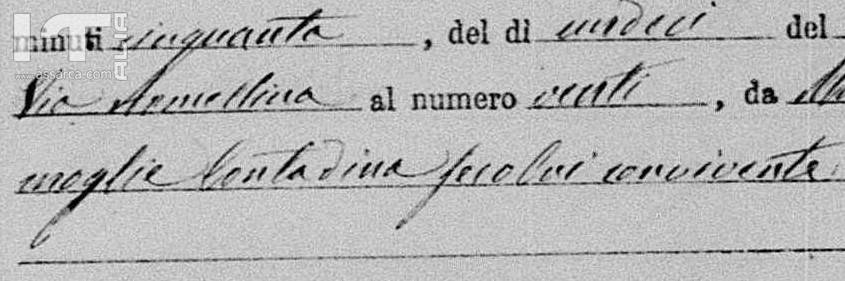 minuti cinquanta, del dì undici del
Via Armellina al numero venti, da
moglie Contadina seco lui convivente
www.assarca.com
ITALIA